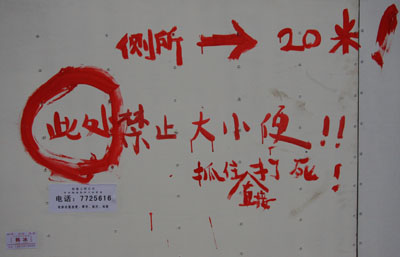 侧所 → 20米!
此处禁止大小便!!
抓住直接打死!
电话:7725616